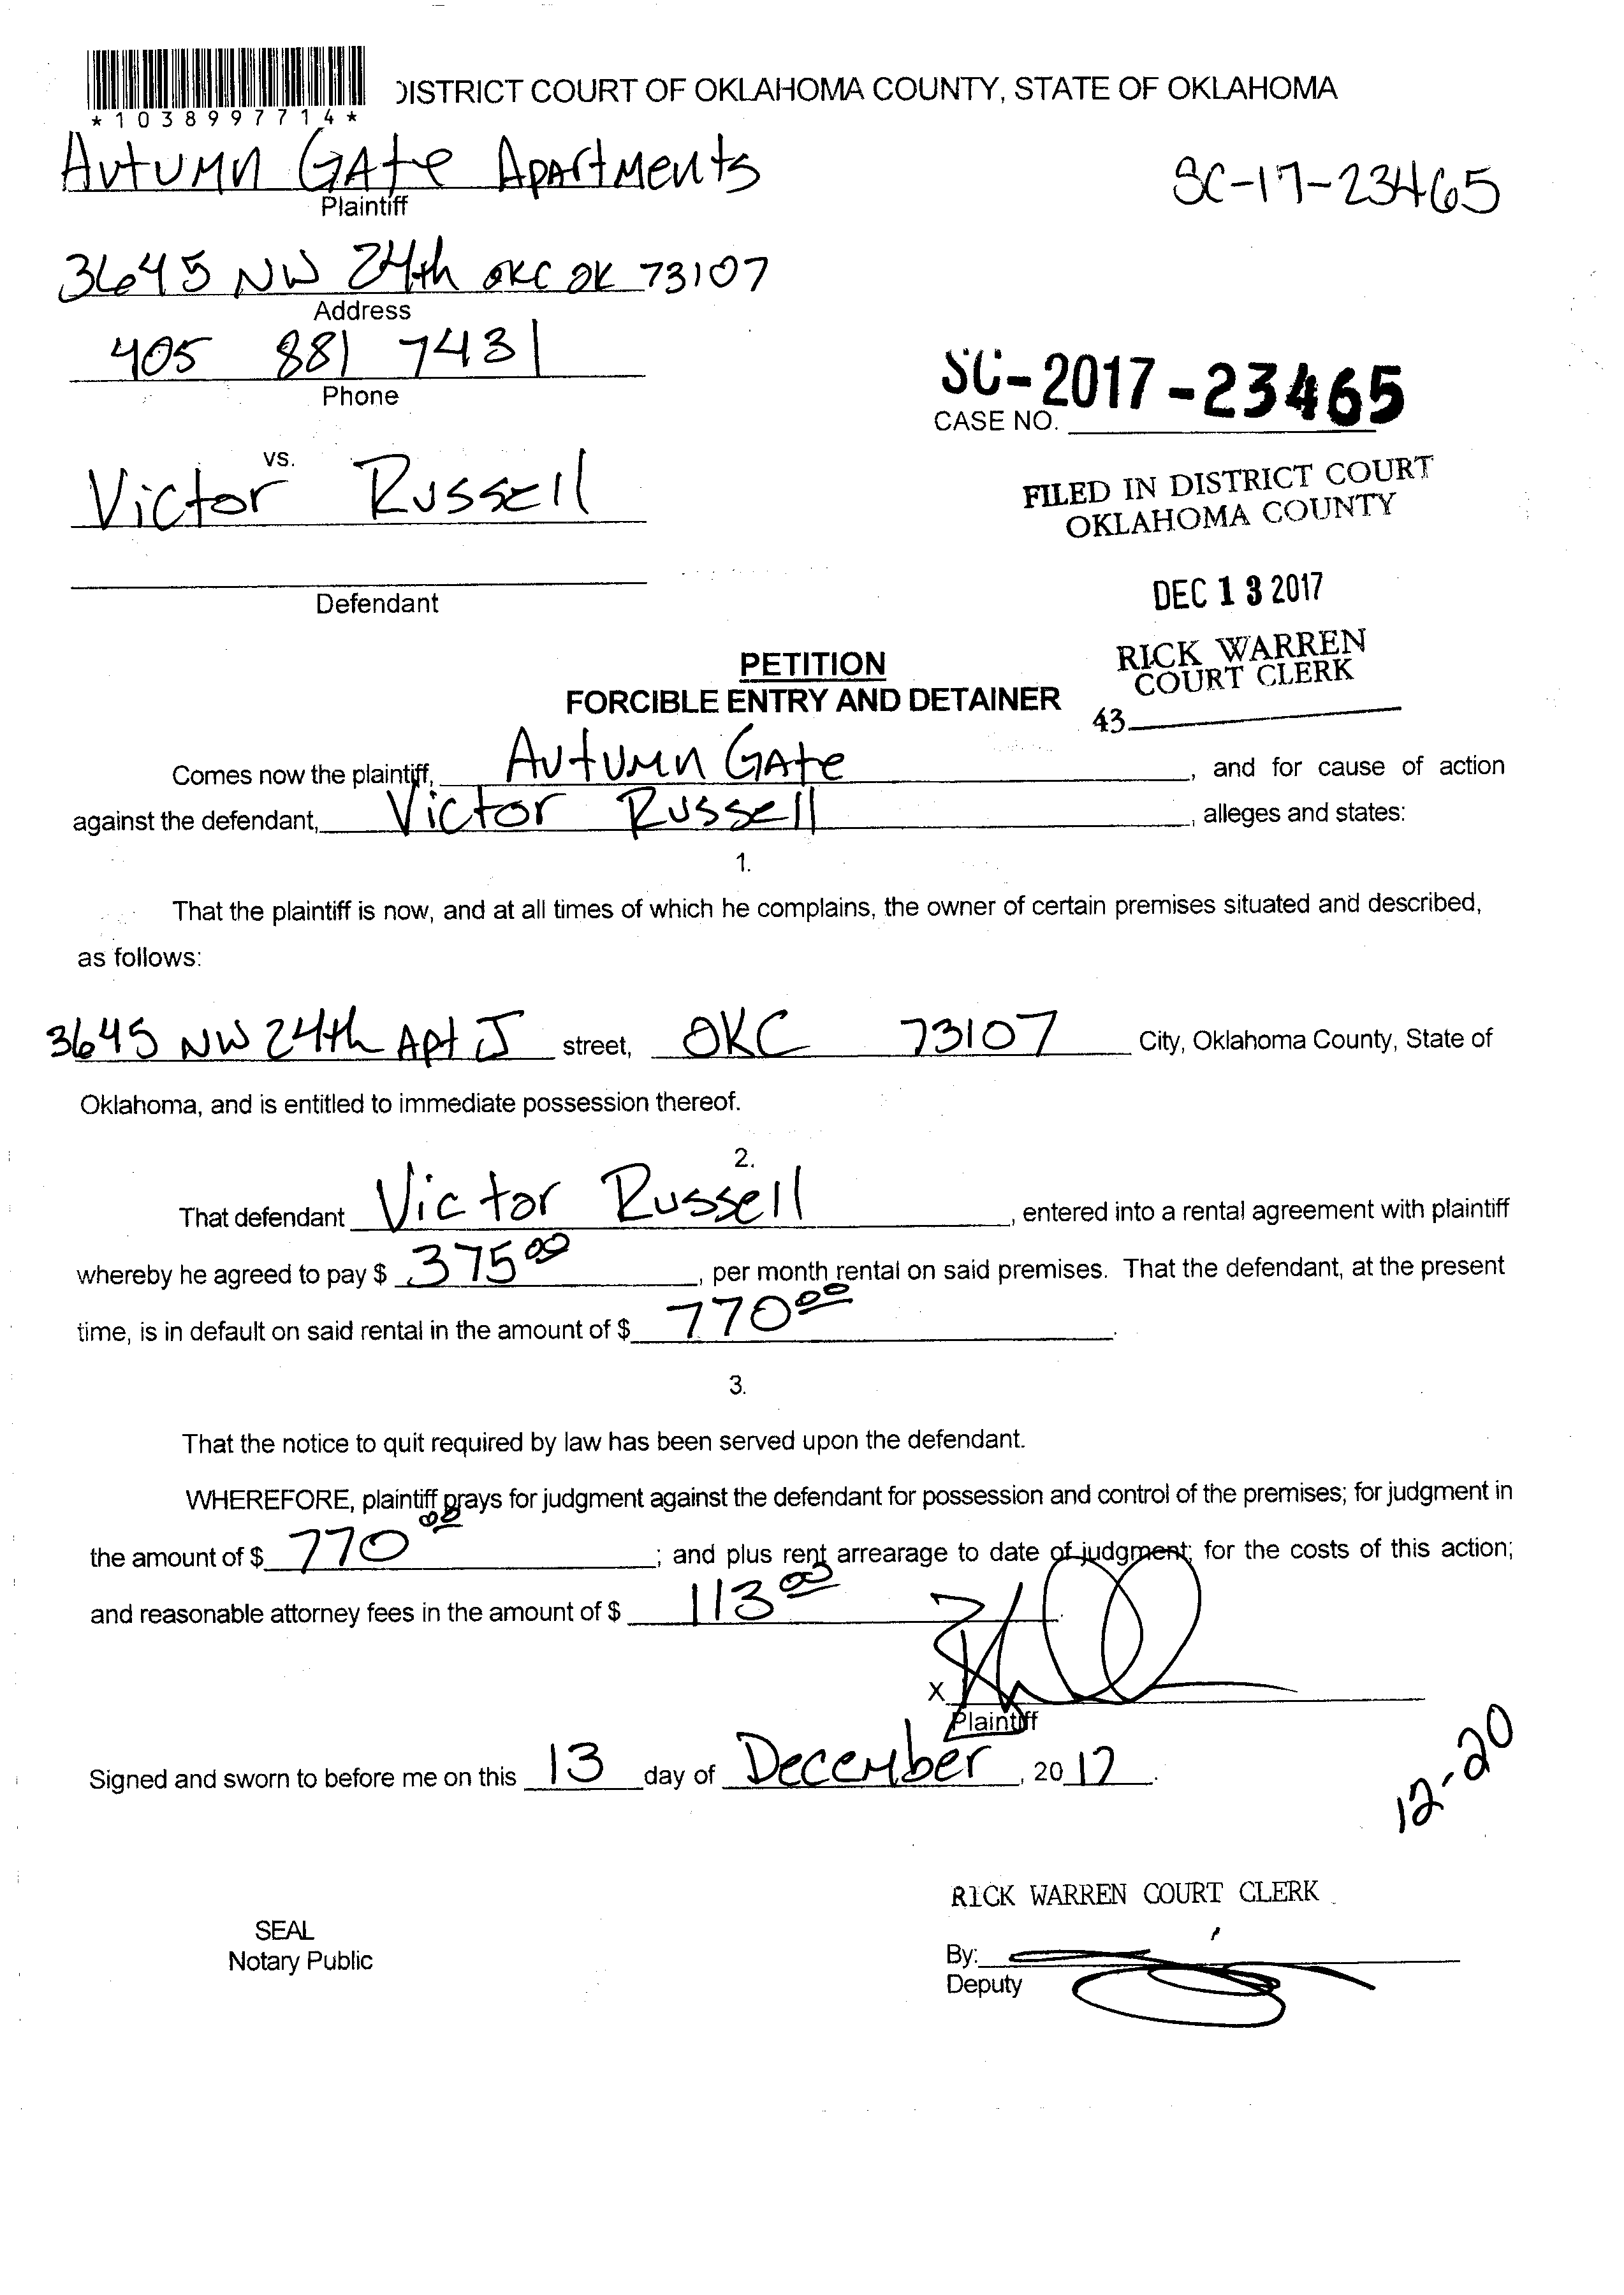 DISTRICT COURT OF OKLAHOMA COUNTY, STATE OF OKLAHOMA
*1038997714*
Autumn Gate Apartments
Plaintiff
SC-17-23465
3645 NW 24th OKC OK 73107
Address
405 881 7431
Phone
SC-2017-23465
CASE NO.
vs.
Victor Russell
FILED IN DISTRICT COURT
OKLAHOMA COUNTY
Defendant
DEC 13 2017
RICK WARREN
COURT CLERK
43
PETITION
FORCIBLE ENTRY AND DETAINER
Comes now the plaintiff, Autumn Gate, and for cause of action
against the defendant, Victor Russell, alleges and states:
1.
That the plaintiff is now, and at all times of which he complains, the owner of certain premises situated and described,
as follows:
3645 NW 24th Apt J street, OKC 73107 City, Oklahoma County, State of
Oklahoma, and is entitled to immediate possession thereof.
2.
That defendant Victor Russell, entered into a rental agreement with plaintiff
whereby he agreed to pay $ 375.00, per month rental on said premises. That the defendant, at the present
time, is in default on said rental in the amount of $ 770.00.
3.
That the notice to quit required by law has been served upon the defendant.
WHEREFORE, plaintiff prays for judgment against the defendant for possession and control of the premises; for judgment in
the amount of $ 770.00; and plus rent arrearage to date of judgment; for the costs of this action;
and reasonable attorney fees in the amount of $ 113.00.
X
Plaintiff
Signed and sworn to before me on this 13 day of December, 2017.
12-20
RICK WARREN COURT CLERK
SEAL
Notary Public
By:
Deputy